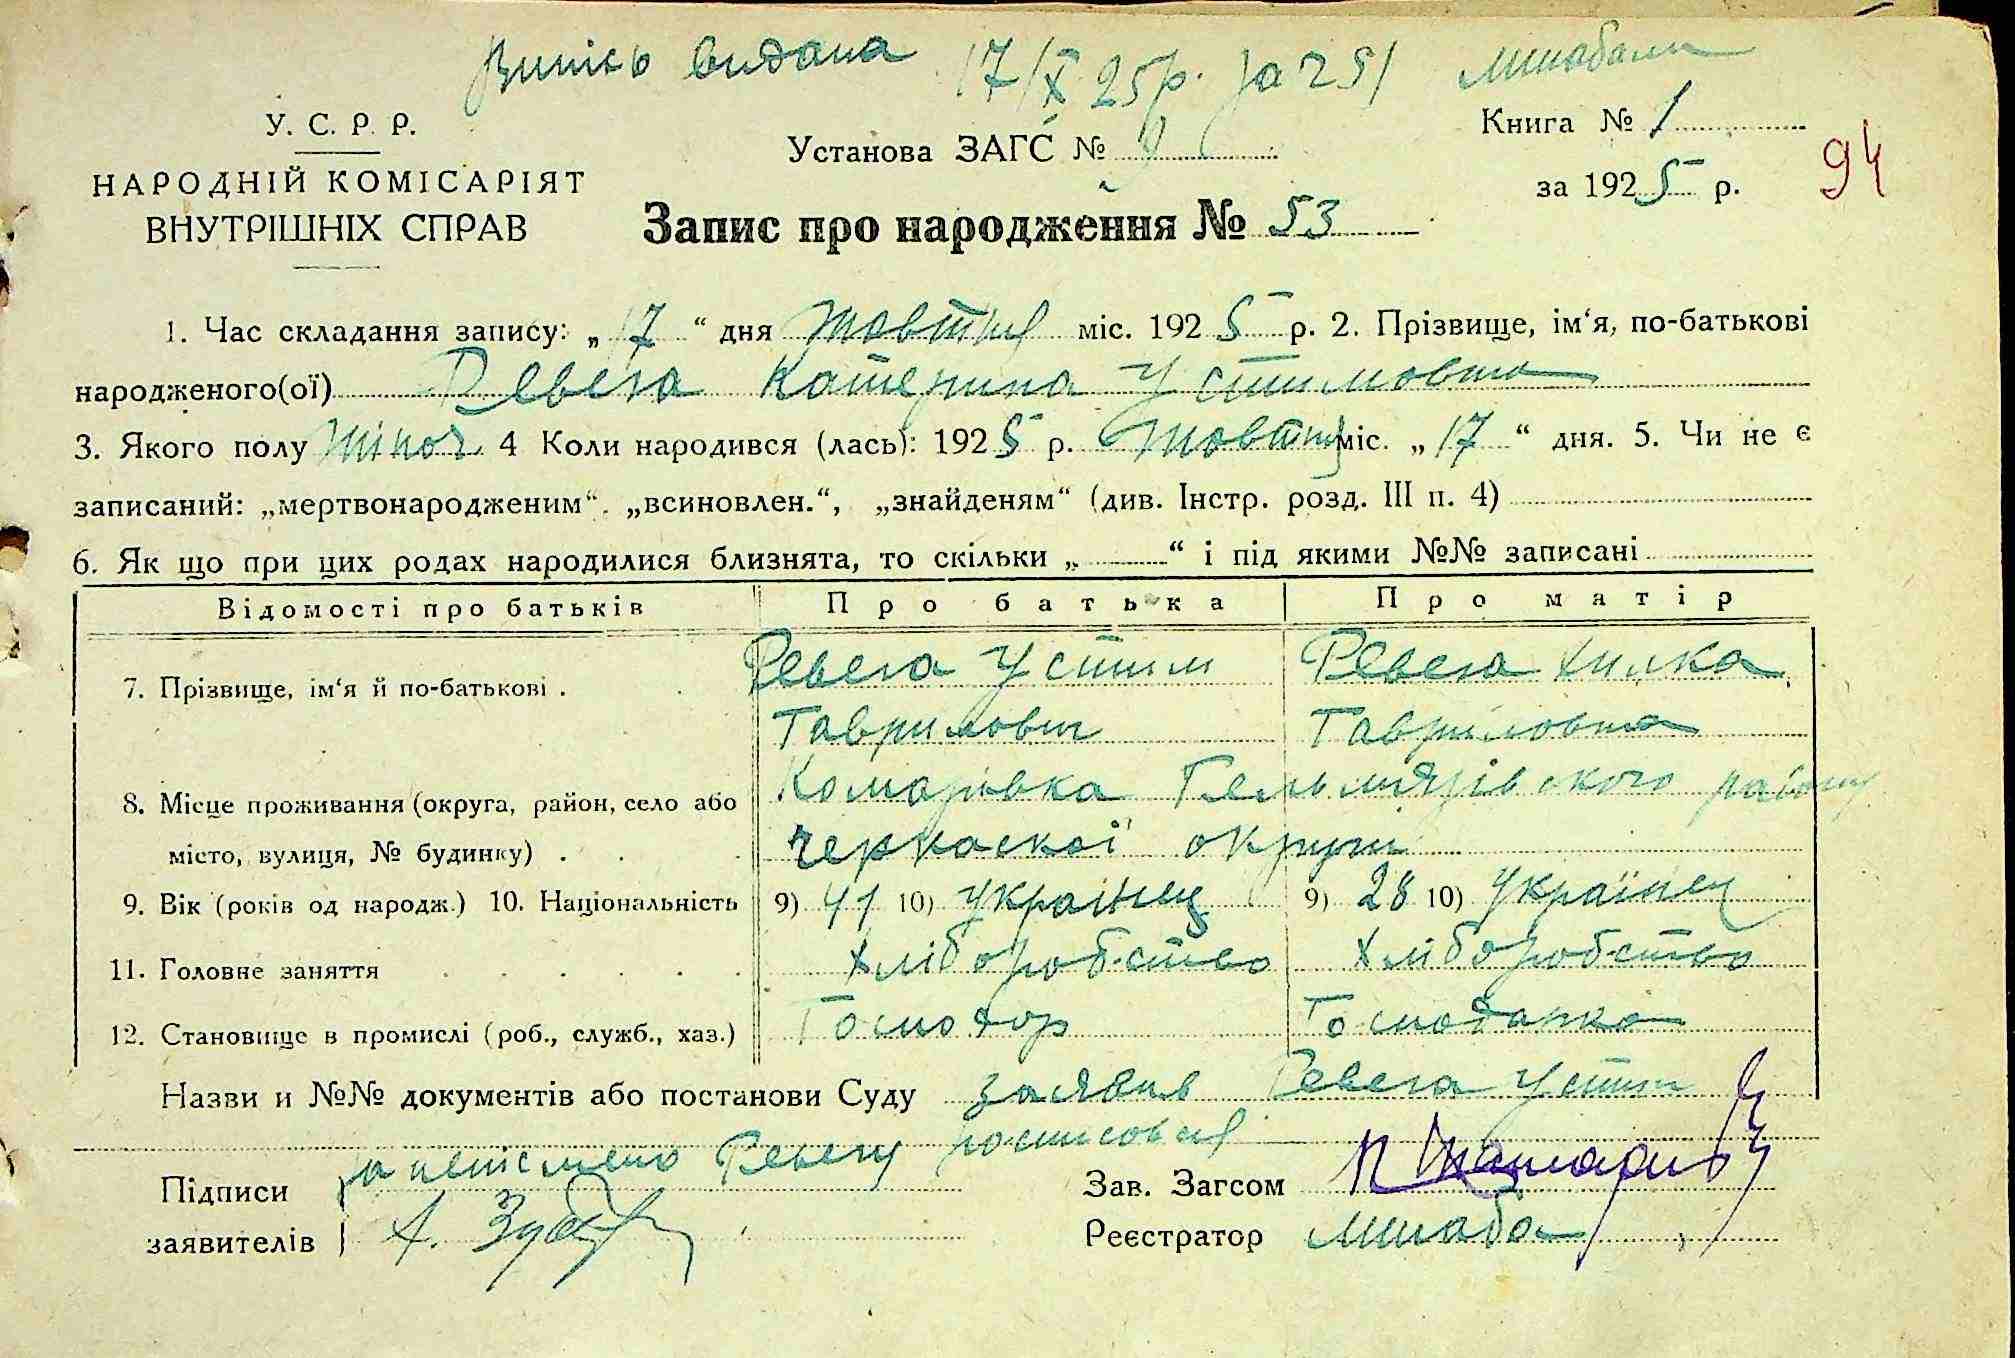 Випісь видана 17/X 25р. за 251
У. С. Р. Р.
НАРОДНІЙ КОМІСАРІЯТ
ВНУТРІШНІХ СПРАВ
Установа ЗАГС №
Книга № 1
за 1925 р.
94
Запис про народження № 53
1. Час складання запису: „17“ дня Жовтня міс. 1925 р. 2. Прізвище, ім‘я, по-батькові
народженого(ої) Ревега Катерина Устимовна
3. Якого полу жіноч. 4 Коли народився (лась): 1925 р. Жовтня міс. „17“ дня. 5. Чи не є
записаний: „мертвонародженим“, „всиновлен.“, „знайденям“ (див. Інстр. розд. III п. 4)
6. Як що при цих родах народилися близнята, то скільки „ “ і під якими №№ записані
Відомості про батьків Про батька Про матір
7. Прізвище, ім‘я й по-батькові . Ревега Устим Ревега Хилка
Гаврилович Гавриловна
8. Місце проживання (округа, район, село або Комарівка Гельмязівського району
місто, вулиця, № будинку) . Черкаской округи
9. Вік (років од народж.) 10. Національність 9) 41 10) українец 9) 28 10) українец
11. Головне заняття хліборобство хліборобство
12. Становище в промислі (роб., служб., хаз.) Господар Господарка
Назви и №№ документів або постанови Суду заявив Ревега Устим
за непісмено Ревегу росписовся
Підписи
заявителів А.
Зав. Загсом
Реєстратор